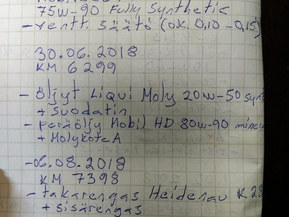 75W-90 Fully Synthetic
- ventt. säätö (ok. 0,10-0,15)
30.06.2018
KM 6299
- Öljyt Liqui Moly 20W-50 syn
+ Suodatin
- peräöljy Mobil HD 80W-90 miner
+ Molykote A
-06.08.2018
KM 7398
- takarengas Heidenau K28
+ sisärengas